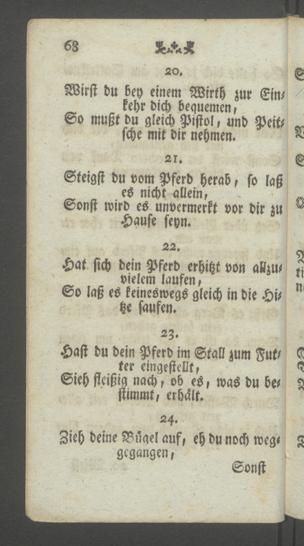 68
20.
Wirst du bey einem Wirth zur Ein-
kehr dich bequemen,
So mußt du gleich Pistol, und Peit-
sche mit dir nehmen.
21.
Steigst du vom Pferd herab, so laß
es nicht allein,
Sonst wird es unvermerkt vor dir zu
Hause seyn.
22.
Hat sich dein Pferd erhitzt von allzu-
vielem laufen,
So laß es keineswegs gleich in die Hi-
tze saufen.
23.
Hast du dein Pferd im Stall zum Fut-
ter eingestellt,
Sieh fleißig nach, ob es, was du be-
stimmt, erhält.
24.
Zieh deine Bügel auf, eh du noch weg-
gegangen,
Sonst